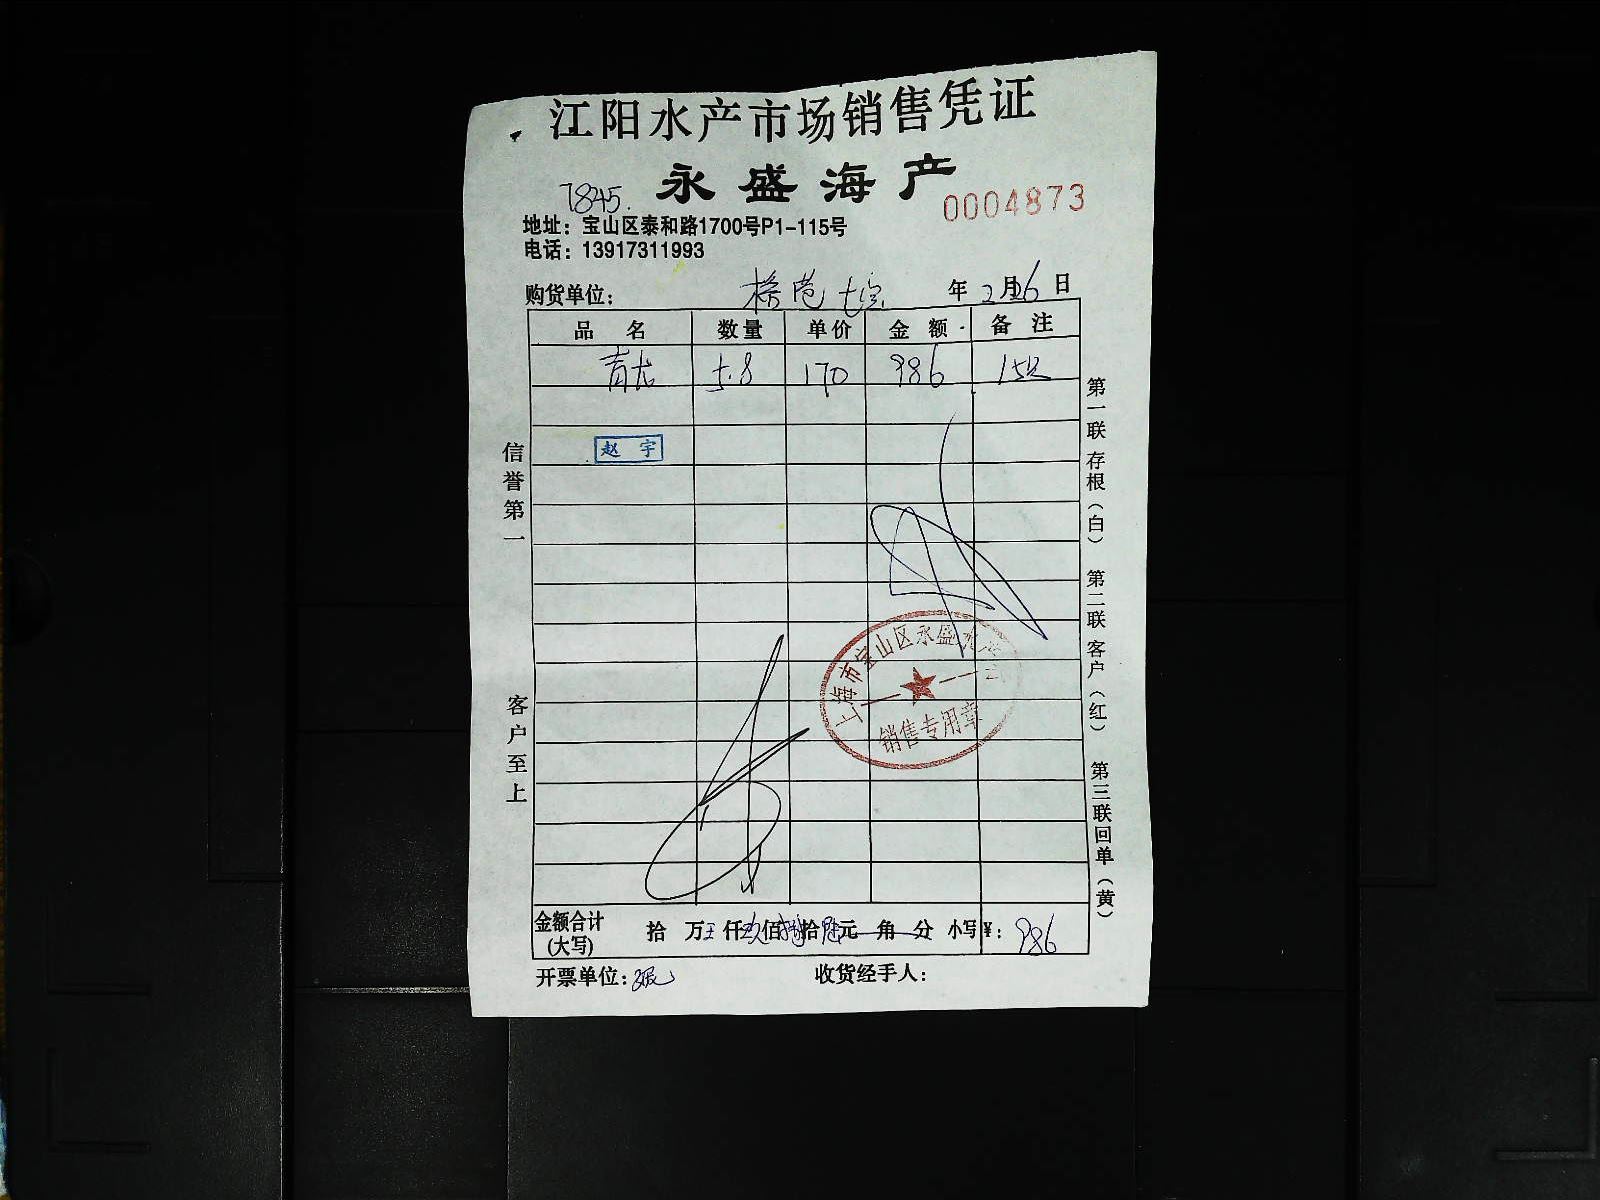 江阳水产市场销售凭证
永盛海产
7845.
0004873
地址：宝山区泰和路1700号P1-115号
电话：13917311993
购货单位： 年 2月26日
品名 数量 单价 金额 备注
青龙 5.8 170 986 15只
赵宇
信誉第一
客户至上
第一联存根（白） 第二联客户（红） 第三联回单（黄）
上海市宝山区永盛水
销售专用章
金额合计(大写) 拾 万 仟玖佰捌拾陆元 角 分 小写¥：986
开票单位： 收货经手人：